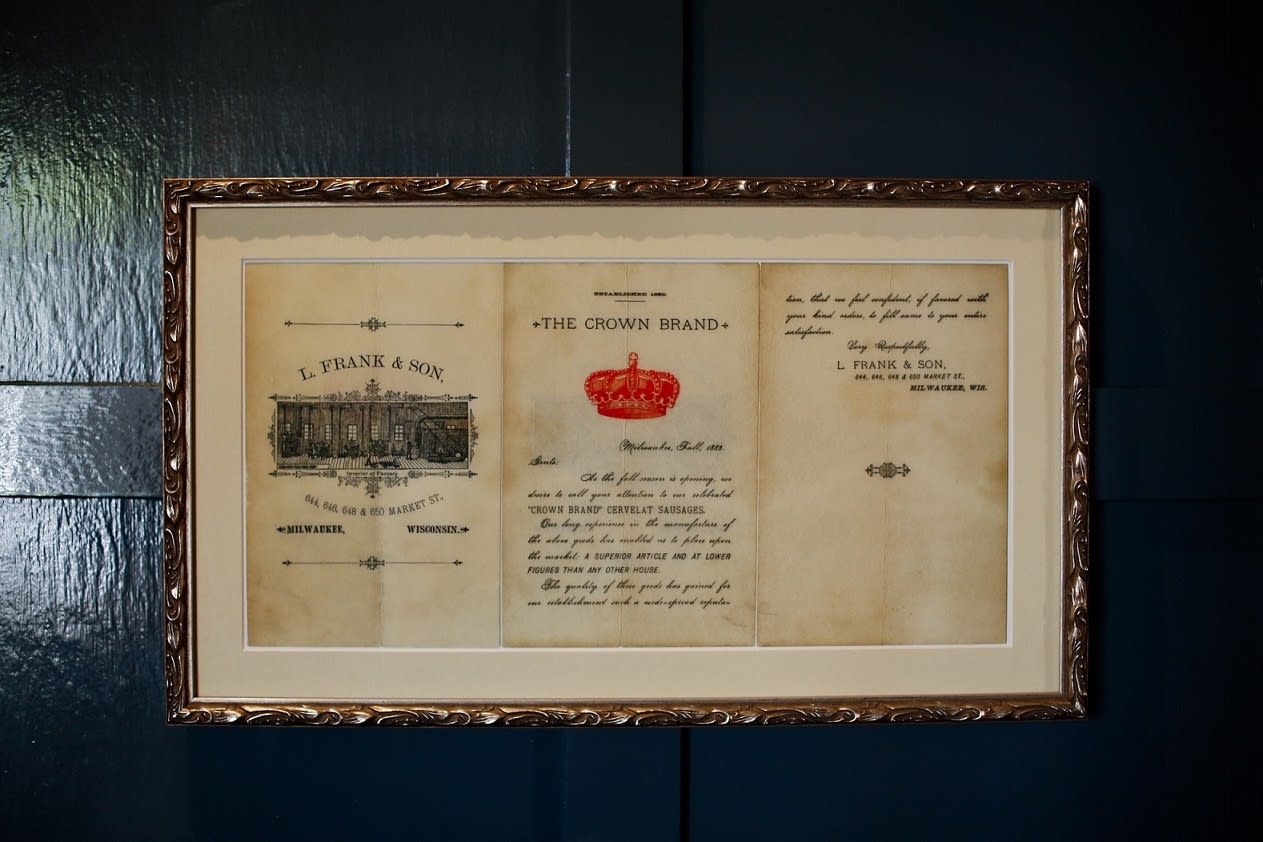 L. FRANK & SON,
Interior of Factory
644, 646, 648 & 650 MARKET ST.,
MILWAUKEE, WISCONSIN.
ESTABLISHED 1860.
THE CROWN BRAND
Milwaukee, Fall, 1883.
Gents:
As the fall season is opening, we
desire to call your attention to our celebrated
"CROWN BRAND" CERVELAT SAUSAGES.
Our long experience in the manufacture of
the above goods has enabled us to place upon
the market: A SUPERIOR ARTICLE AND AT LOWER
FIGURES THAN ANY OTHER HOUSE.
The quality of these goods has gained for
our establishment such a wide-spread reputa-
tion, that we feel confident, if favored with
your kind orders, to fill same to your entire
satisfaction.
Very Respectfully,
L. FRANK & SON,
644, 646, 648 & 650 MARKET ST.,
MILWAUKEE, WIS.